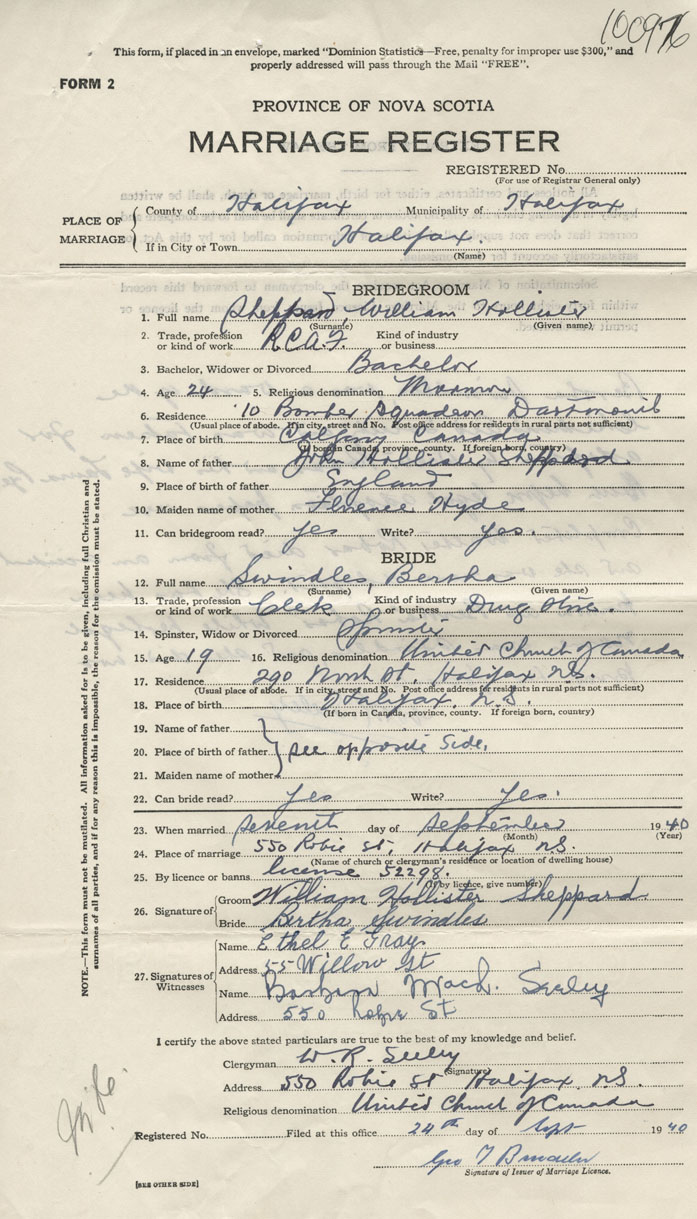 100976
This form, if placed in an envelope, marked "Dominion Statistics—Free, penalty for improper use $300," and
properly addressed will pass through the Mail "FREE".
FORM 2
PROVINCE OF NOVA SCOTIA
MARRIAGE REGISTER
REGISTERED No.
(For use of Registrar General only)
PLACE OF MARRIAGE
County of Halifax Municipality of Halifax
If in City or Town Halifax.
(Name)
BRIDEGROOM
1. Full name Sheppard, William Hollister
(Surname) (Given name)
2. Trade, profession or kind of work R.C.A.F. Kind of industry or business
3. Bachelor, Widower or Divorced Bachelor
4. Age 24 5. Religious denomination Mormon
6. Residence 10 Bomber Squadron Dartmouth
(Usual place of abode. If in city, street and No. Post office address for residents in rural parts not sufficient)
7. Place of birth Calgary Canada
(If born in Canada, province, county. If foreign born, country)
8. Name of father John Hollister Sheppard
9. Place of birth of father England
10. Maiden name of mother Florence Hyde
11. Can bridegroom read? Yes Write? Yes.
BRIDE
12. Full name Swindles, Bertha
(Surname) (Given name)
13. Trade, profession or kind of work Clerk Kind of industry or business Drug Store.
14. Spinster, Widow or Divorced Spinster
15. Age 19 16. Religious denomination United Church of Canada
17. Residence 290 North St. Halifax N.S.
(Usual place of abode. If in city, street and No. Post office address for residents in rural parts not sufficient)
18. Place of birth Halifax, N.S.
(If born in Canada, province, county. If foreign born, country)
19. Name of father
20. Place of birth of father see opposite side.
21. Maiden name of mother
22. Can bride read? Yes Write? Yes.
23. When married seventh day of September 1940
(Month) (Year)
24. Place of marriage 550 Robie St, Halifax N.S.
(Name of church or clergyman's residence or location of dwelling house)
25. By licence or banns license 52298.
(If by licence, give number)
26. Signature of
Groom William Hollister Sheppard
Bride Bertha Swindles
27. Signatures of Witnesses
Name Ethel E Gray
Address 55 Willow St
Name Barbara MacD. Seeley
Address 550 Robie St
I certify the above stated particulars are true to the best of my knowledge and belief.
Clergyman W. R. Seeley
(Signature)
Address 550 Robie St Halifax N.S.
Religious denomination United Church of Canada
Registered No. Filed at this office 24th day of Sept 1940
Geo T
Signature of Issuer of Marriage Licence.
[SEE OTHER SIDE]
NOTE.—This form must not be mutilated. All information asked for is to be given, including full Christian and
surnames of all parties, and if for any reason this is impossible, the reason for the omission must be stated.